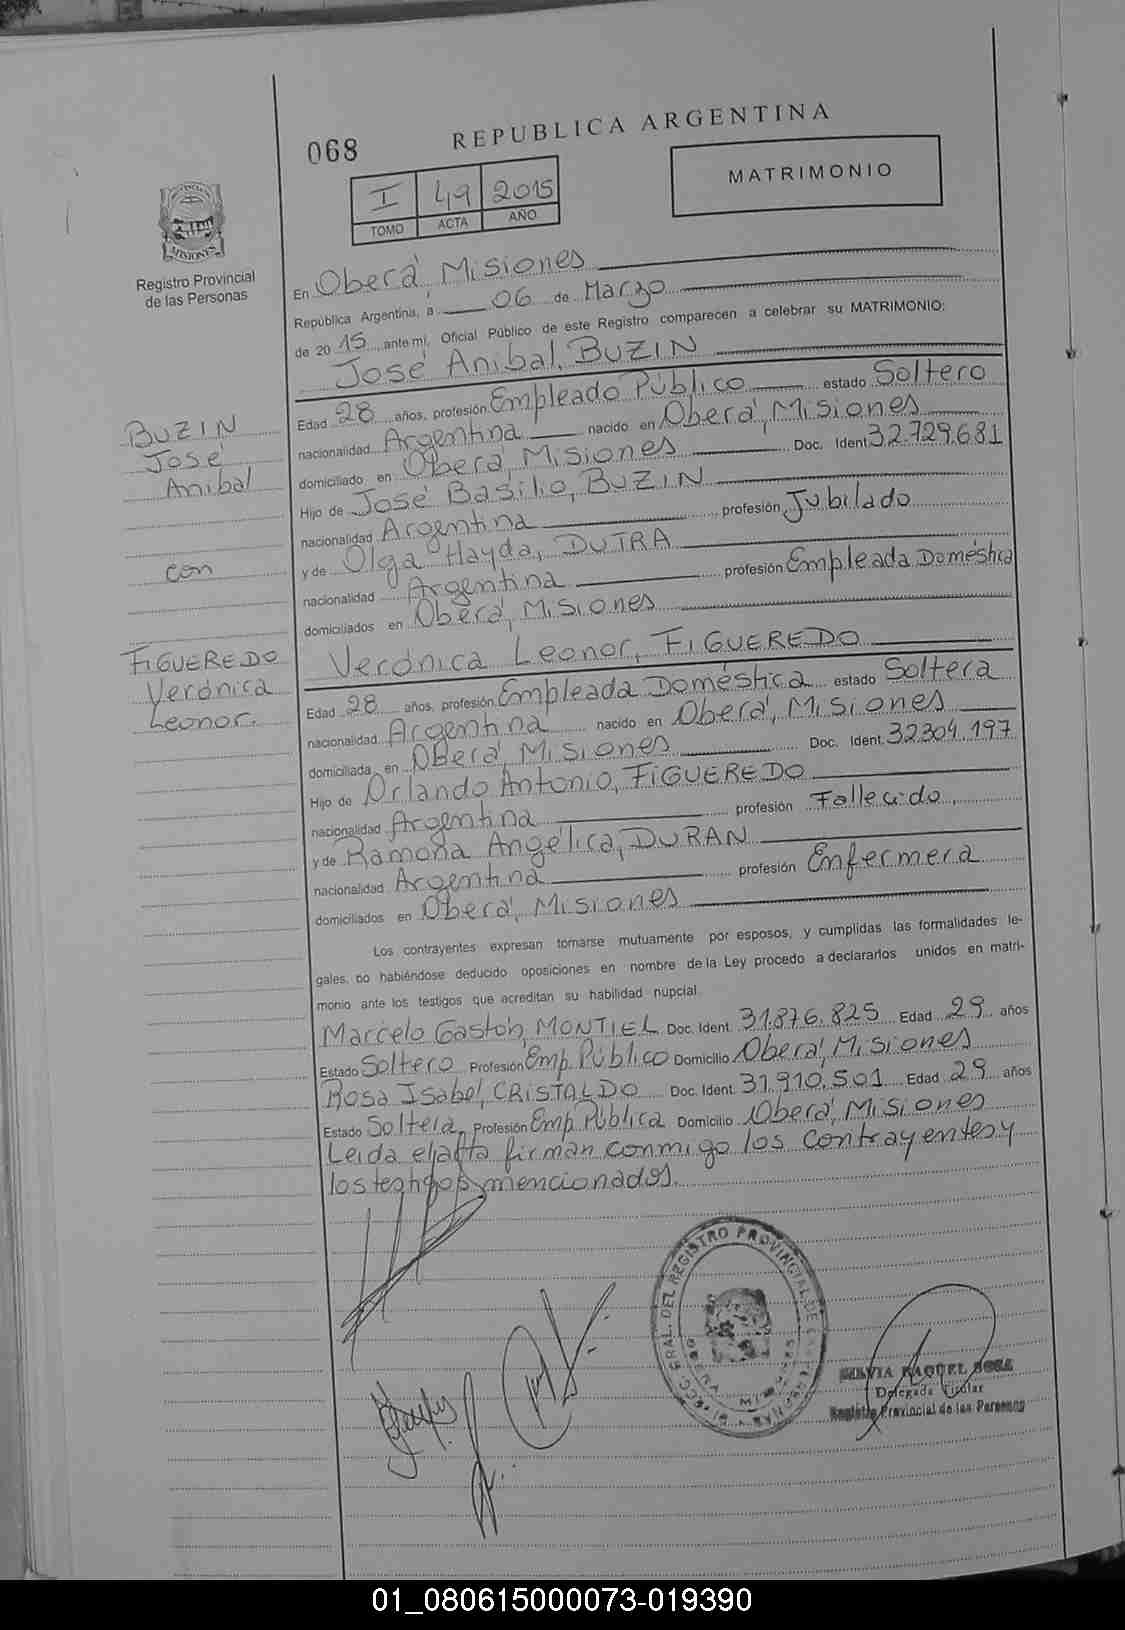 068
REPUBLICA ARGENTINA
I 49 2015
TOMO ACTA AÑO
MATRIMONIO
MISIONES
Registro Provincial
de las Personas
En Oberá, Misiones
República Argentina, a 06 de Marzo
de 2015 ante mí, Oficial Público de este Registro comparecen a celebrar su MATRIMONIO:
José Anibal, BUZIN
Edad 28 años, profesión Empleado Público estado Soltero
nacionalidad Argentina nacido en Oberá, Misiones
domiciliado en Oberá, Misiones Doc. Ident. 32.729.681
Hijo de José Basilio, BUZIN
nacionalidad Argentina profesión Jubilado
y de Olga Hayda, DUTRA
nacionalidad Argentina profesión Empleada Doméstica
domiciliados en Oberá, Misiones
BUZIN
José
Anibal
con
FIGUEREDO
Verónica
Leonor.
Verónica Leonor, FIGUEREDO
Edad 28 años, profesión Empleada Doméstica estado Soltera
nacionalidad Argentina nacido en Oberá, Misiones
domiciliada en Oberá, Misiones Doc. Ident. 32304.197
Hijo de Orlando Antonio, FIGUEREDO
nacionalidad Argentina profesión Fallecido
y de Ramona Angélica, DURAN
nacionalidad Argentina profesión Enfermera
domiciliados en Oberá, Misiones
Los contrayentes expresan tomarse mutuamente por esposos, y cumplidas las formalidades le-
gales, no habiéndose deducido oposiciones en nombre de la Ley procedo a declararlos unidos en matri-
monio ante los testigos que acreditan su habilidad nupcial.
Marcelo Gastón, MONTIEL Doc. Ident. 31.876.825 Edad 29 años
Estado Soltero Profesión Emp. Público Domicilio Oberá, Misiones
Rosa Isabel, CRISTALDO Doc. Ident. 31.910.501 Edad 29 años
Estado Soltera Profesión Emp. Pública Domicilio Oberá, Misiones
Leída el acta firman conmigo los contrayentes y
los testigos mencionados.
GRAL. DEL REGISTRO PROVINCIAL DE
SILVIA RAQUEL SOSA
Delegada Titular
Registro Provincial de las Personas
01_080615000073-019390